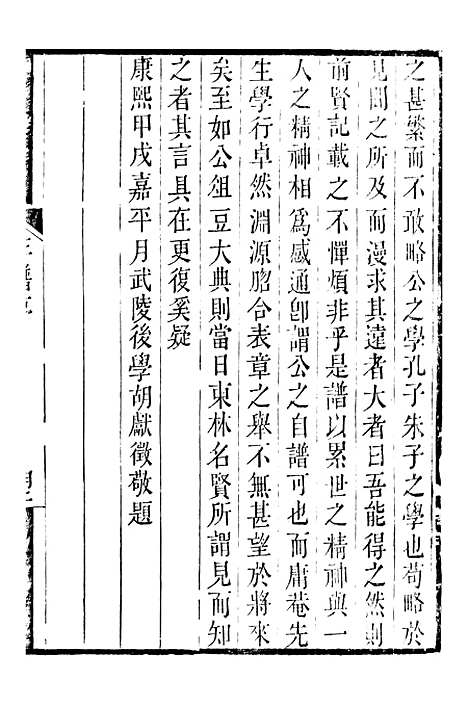 之甚繁而不敢略公之學孔子朱子之學也苟略於
見聞之所及而漫求其遠者大者曰吾能得之然則
前賢記載之不憚煩非乎是譜以累世之精神與一
人之精神相爲感通卽謂公之自譜可也而庸菴先
生學行卓然淵源脗合表章之舉不無甚望於將來
矣至如公俎豆大典則當日東林名賢所謂見而知
之者其言具在更復奚疑
康熙甲戌嘉平月武陵後學胡獻徵敬題